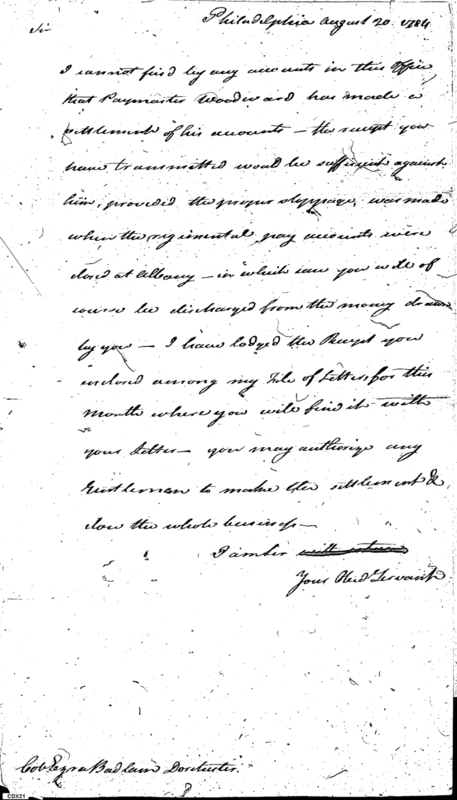 Philadelphia August 20. 1784
Sir
I cannot find by any accounts in this Office
that Paymaster Woodward has made a
settlement of his accounts – the receipt you
have transmitted would be sufficient against
him, provided the proper stoppage, was made
when the regimental pay accounts were
closed at Albany – in which case you will of
course be discharged from the money drawn
by you – I have lodged the Receipt you
inclosed among my File of Letters for this
Month where you will find it with
your Letter – you may authorize any
Gentleman to make the settlement &
close the whole business –
I am Sir
Your Obed Servant
Col Ezra Badlam Dorchester.
CDX21